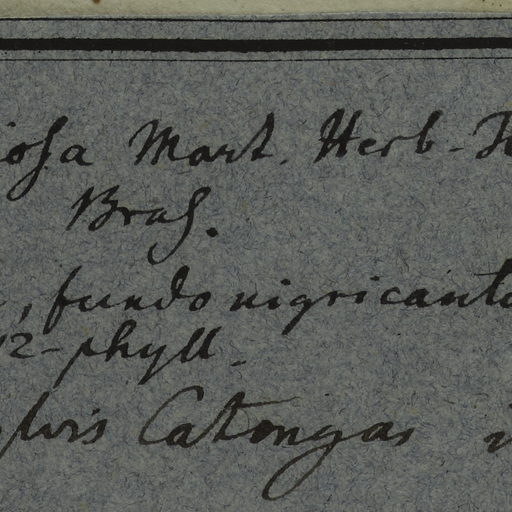 iosa Mart. Herb. Fl
Bras.
, fundo nigricante
12-phyll.
sylvis Catingas i